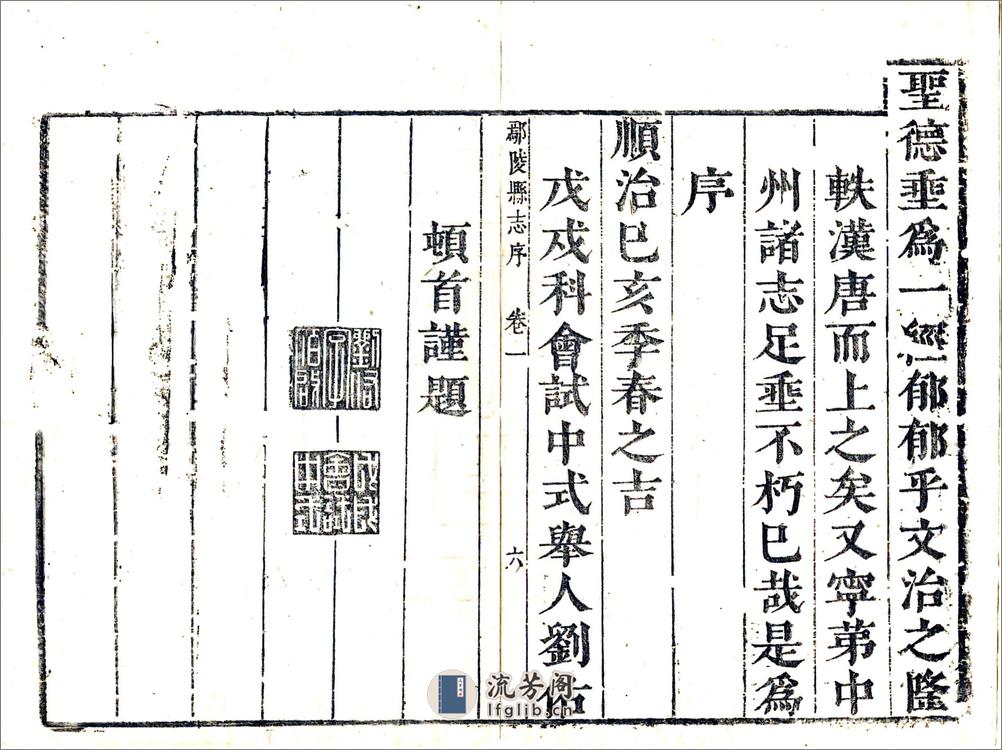 聖德垂爲一經郁郁乎文治之隆
軼漢唐而上之矣又寧第中
州諸志足垂不朽已哉是爲
序
順治己亥季春之吉
戊戌科會試中式舉人劉佑
鄢陵縣志序 卷一 六
頓首謹題
劉佑字伯啟
戊戌會試中式
流芳阁
lfglib.cn